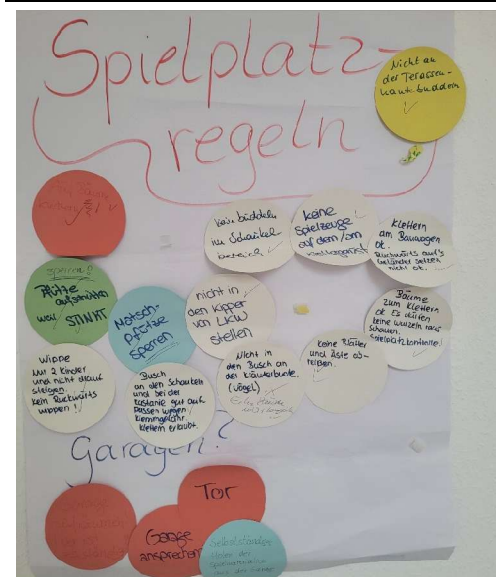 Spielplatz-
regeln
Nicht an
der Terassen-
kante buddeln
kein buddeln
im Schaukel
bereich
keine
Spielzeuge
auf dem/am
Klettern
am Bauwagen
ok.
Rückwärts auf's
Geländer setzen
nicht ok.
Pfütze
aufstreuen
weil STINKT
Matsch-
pfütze
sperren
nicht in
den Kipper
von LKW
stellen
Bäume
zum Klettern
ok Es dürfen
keine wurzeln raus
schauen.
Spielplatzkontrolle!
Wippe
Nur 2 Kinder
und nicht drauf
steigen.
kein Rückwärts
wippen!
Busch
an den Schaukeln
und bei der
Kastanie gut auf
passen wegen
Klemmgefahr.
Klettern erlaubt.
Nicht in
den Busch an
der Kräuterbude.
(Vögel)
keine Blätter
und Äste ab-
reißen.
Garagen?
Tor
Garage
ansprechen
Selbstständiges
Holen der
Spielmaterialien
aus der Garage